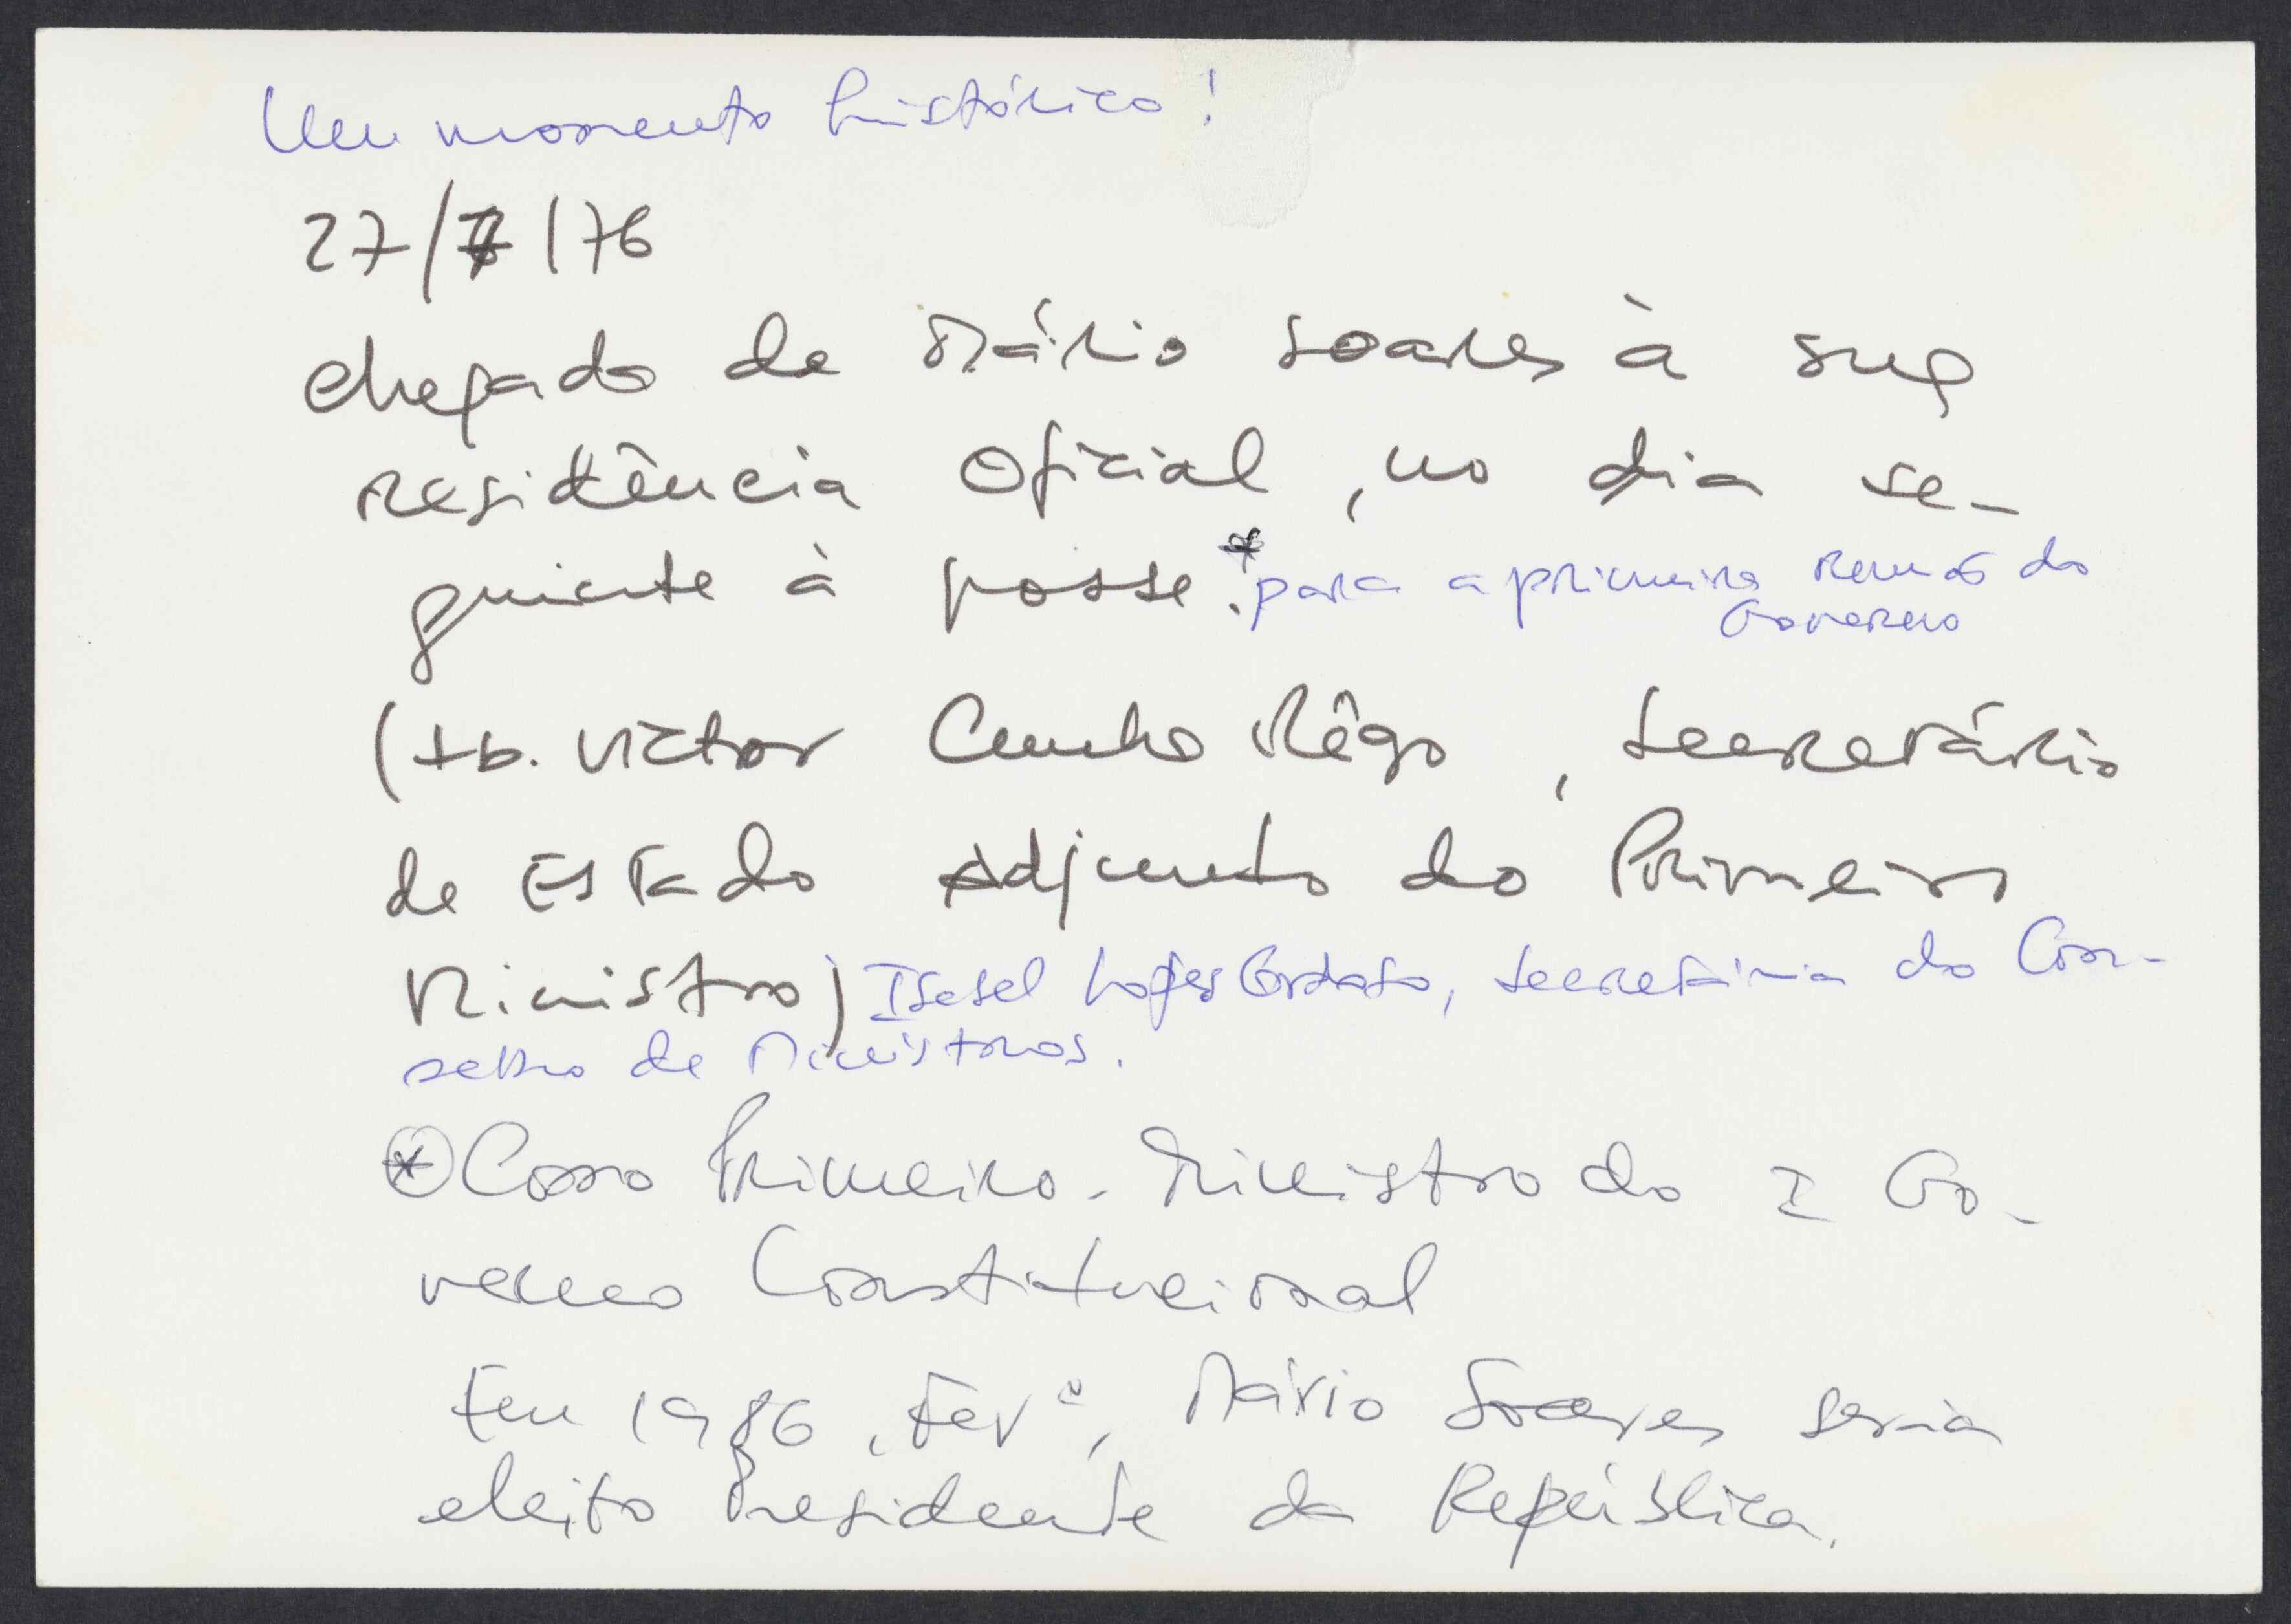 Um momento histórico!
27/7/76
chegada de Mário Soares à sua
residência oficial, no dia se-
guinte à posse.* para a primeira reunião do
Governo
(tb. Victor Cunha Rêgo, Secretário
de Estado Adjunto do Primeiro
Ministro) Isabel Lopes Cardoso, secretária do Con-
selho de Ministros.
* Como Primeiro-Ministro do I Go-
verno Constitucional
Em 1986, Fevº, Mário Soares seria
eleito Presidente da República.